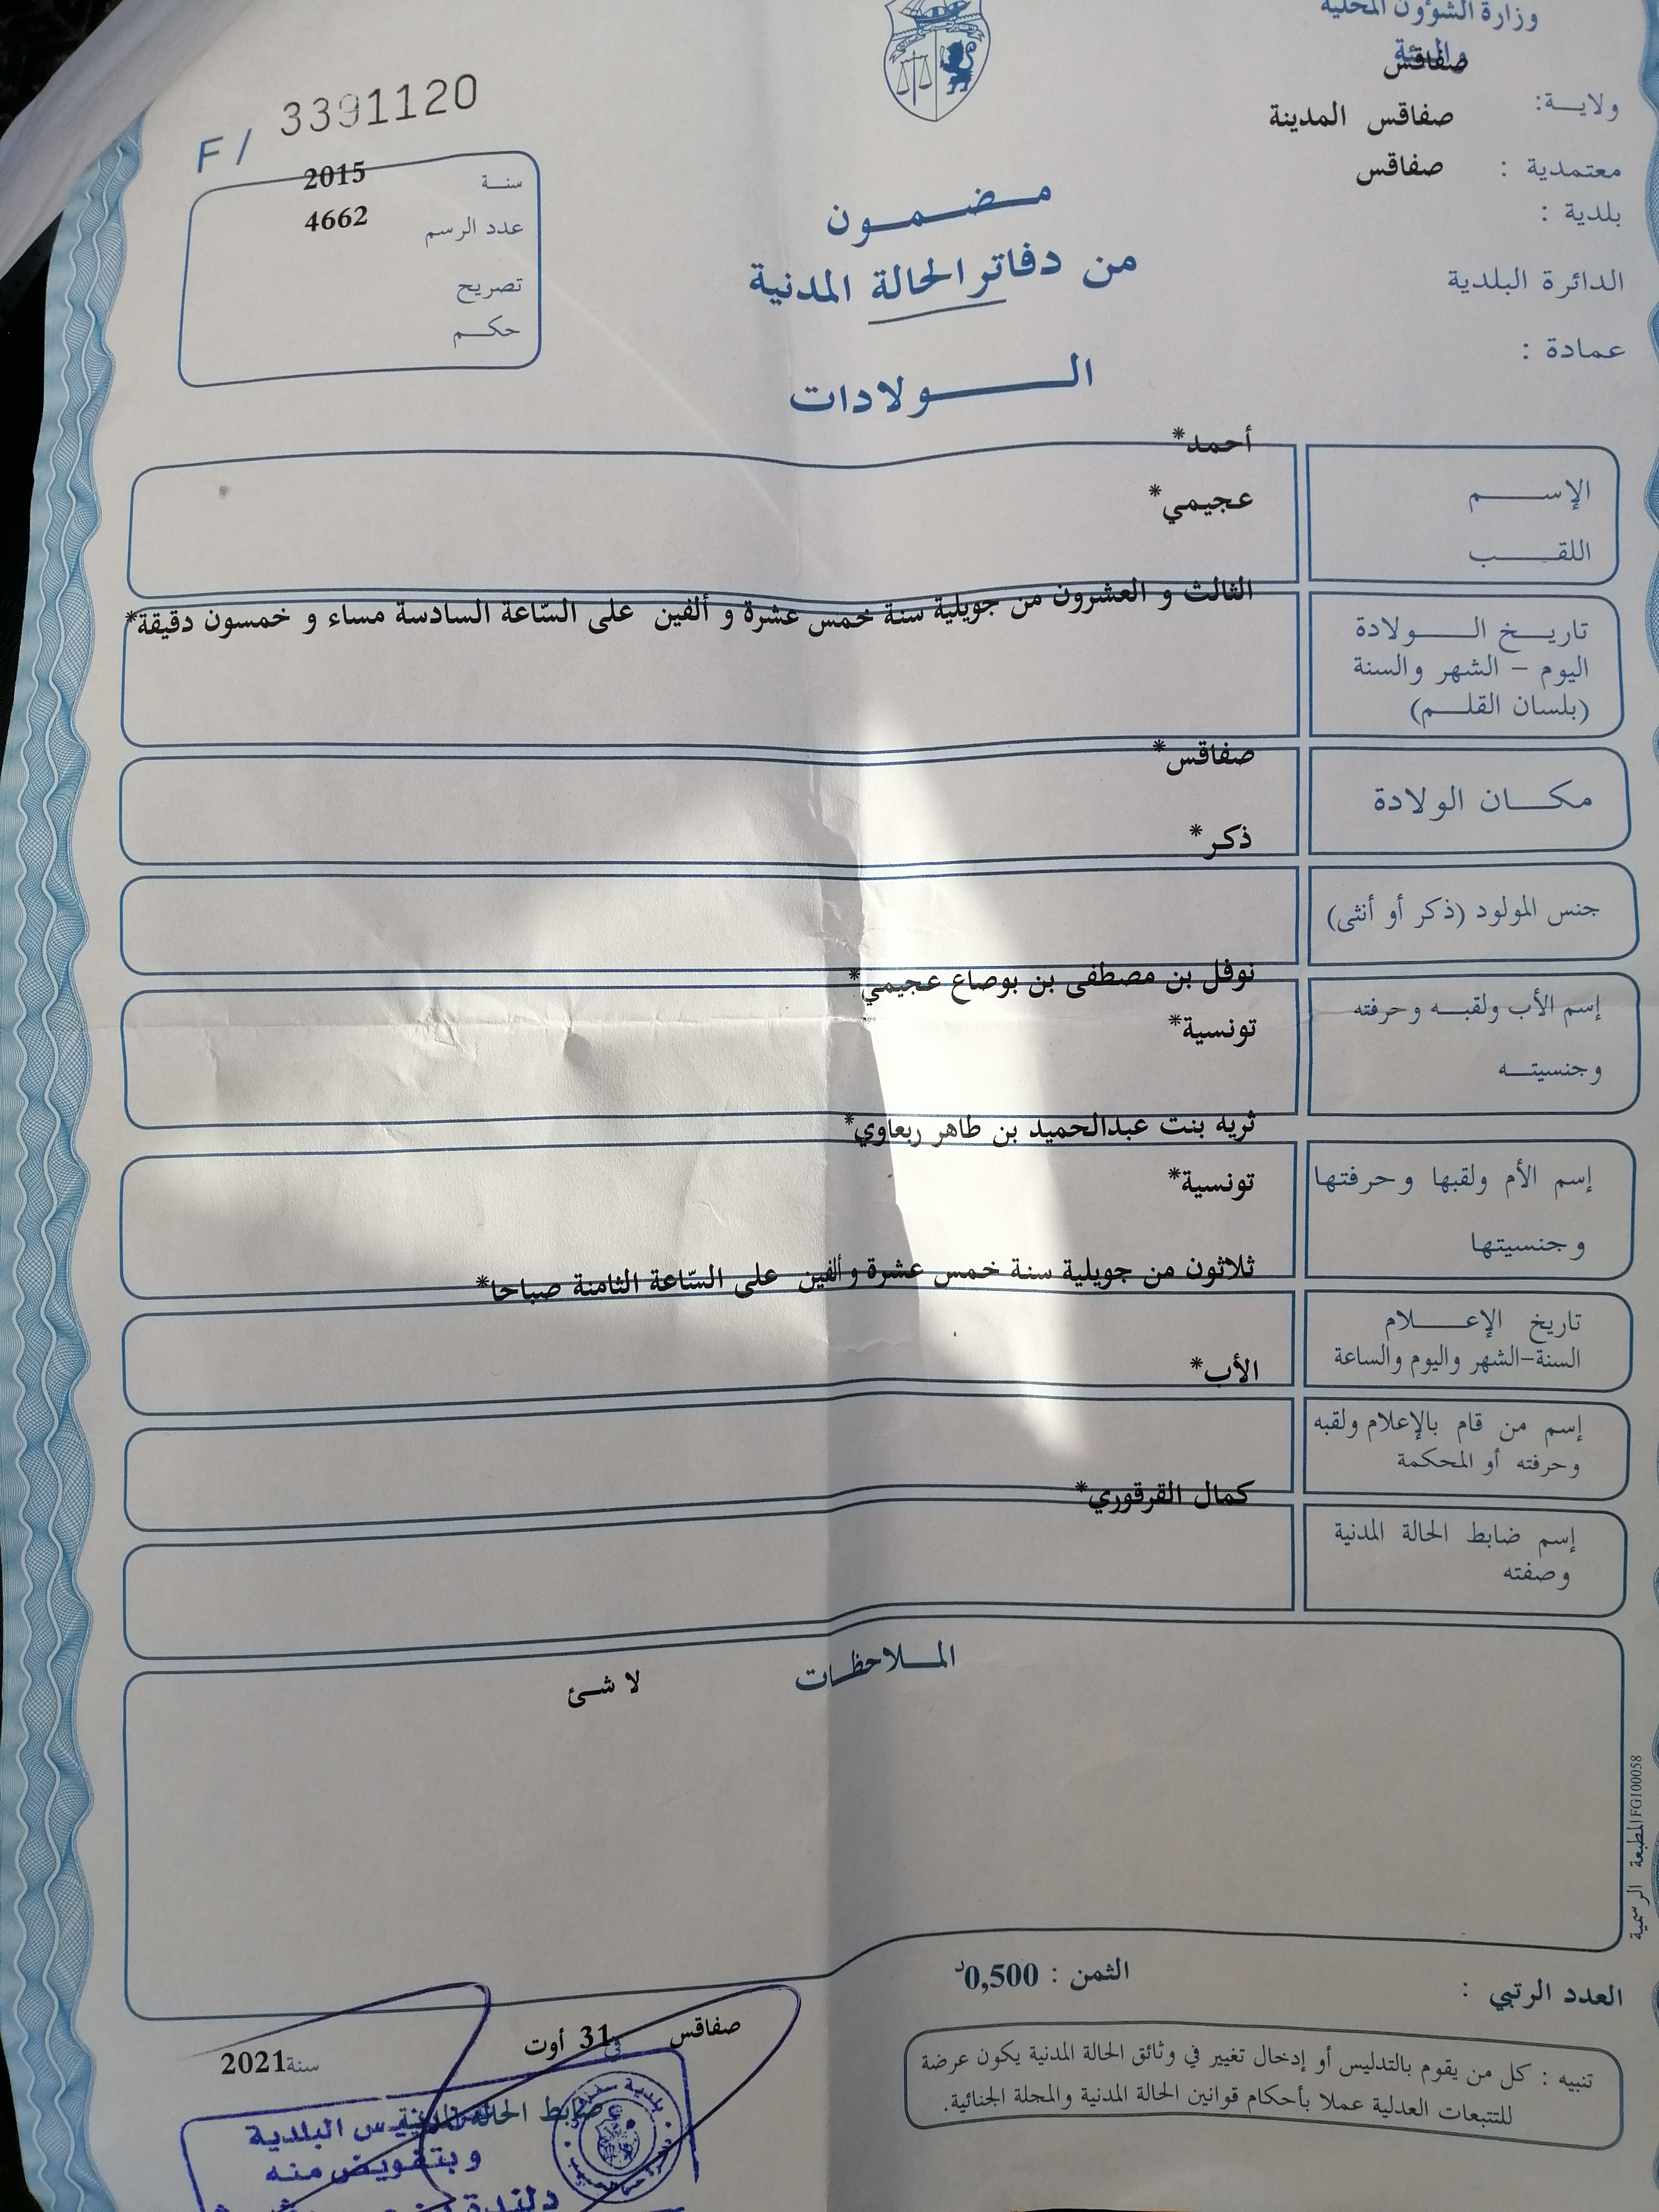 وزارة الشؤون المحلية
والبيئة
صفاقس
ولايـــة:
صفاقس المدينة
معتمدية :
صفاقس
بلدية :
الدائرة البلدية
عمادة :
F/ 3391120
سنـة 2015
عدد الرسم 4662
تصريح
حكـــم
مــضــمــون
من دفاتر الحالة المدنية
الـــولادات
أحمد*
الإســـــم
عجيمي*
اللقـــــب
الثالث و العشرون من جويلية سنة خمس عشرة و ألفين على السّاعة السادسة مساء و خمسون دقيقة*
تاريـــخ الـــــولادة
اليوم – الشهر والسنة
(بلسان القلـــم)
صفاقس*
مكـــان الولادة
ذكر*
جنس المولود (ذكر أو أنثى)
نوفل بن مصطفى بن بوصاع عجيمي*
إسم الأب ولقبـــه وحرفته
تونسية*
وجنسيتـــه
ثريه بنت عبدالحميد بن طاهر ربعاوي*
إسم الأم ولقبها وحرفتها
تونسية*
وجنسيتها
ثلاثون من جويلية سنة خمس عشرة و ألفين على السّاعة الثامنة صباحا*
تاريخ الإعـــــلام
السنة–الشهر واليوم والساعة
الأب*
إسم من قام بالإعلام ولقبه
وحرفته أو المحكمة
كمال القرقوري*
إسم ضابط الحالة المدنية
وصفته
المـــلاحظـــات
لا شئ
المطبعة الرسمية FG100058
العدد الرتبي :
الثمن : 0,500د
تنبيه : كل من يقوم بالتدليس أو إدخال تغيير في وثائق الحالة المدنية يكون عرضة
للتتبعات العدلية عملا بأحكام قوانين الحالة المدنية والمجلة الجنائية.
صفاقس في 31 أوت سنة 2021
ضابط الحالة المدنية
البلدية
وبتفويض منه